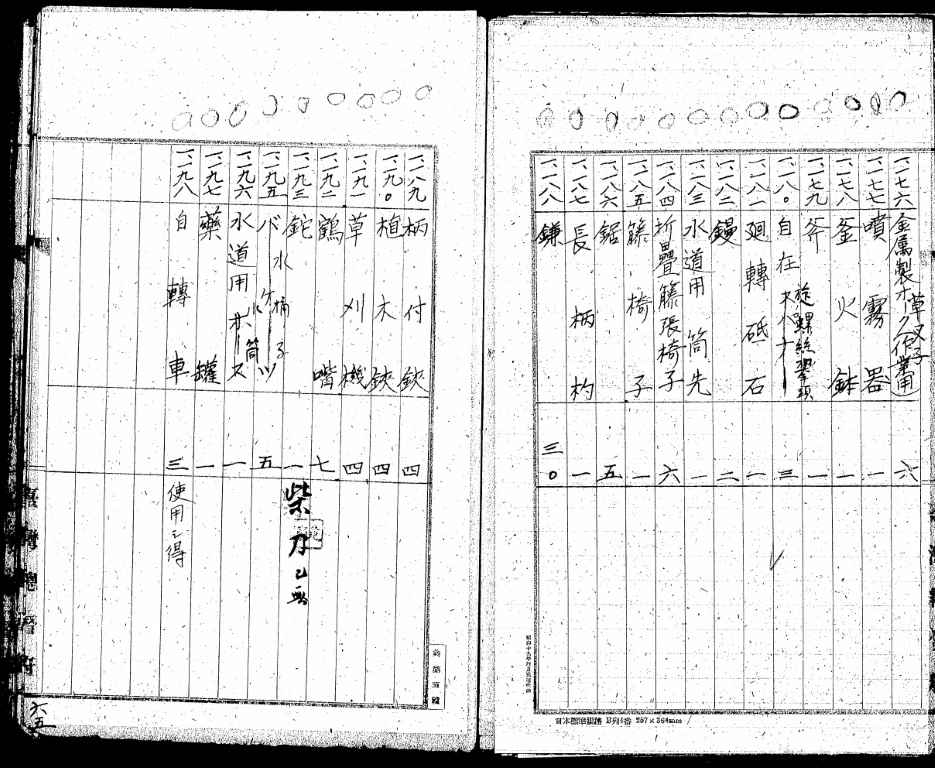 一、一七六 金属製ホーク(作業用) 草叉子 六
一、一七七 噴霧器 一
一、一七八 釜火鉢 一
一、一七九 斧 一
一、一八〇 自在 三
一、一八一 廻轉砥石 一
一、一八二 鏝 二
一、一八三 水道用筒先 一
一、一八四 折疊籐張椅子 六
一、一八五 籐椅子 一
一、一八六 鋸 五
一、一八七 長柄杓 一
一、一八八 鎌 三〇
日本標準規格 B列4番 257×364mm
一、一八九 柄付鋏 四
一、一九〇 植木鋏 四
一、一九一 草刈機 四
一、一九二 鶴嘴 七
一、一九三 鉈 一 柴刀
一、一九五 バケツ 水桶子 五
一、一九六 水道用ホース 水筒 一
一、一九七 藥罐 一
一、一九八 自轉車 三 使用ニ得
臺灣總督府
六五